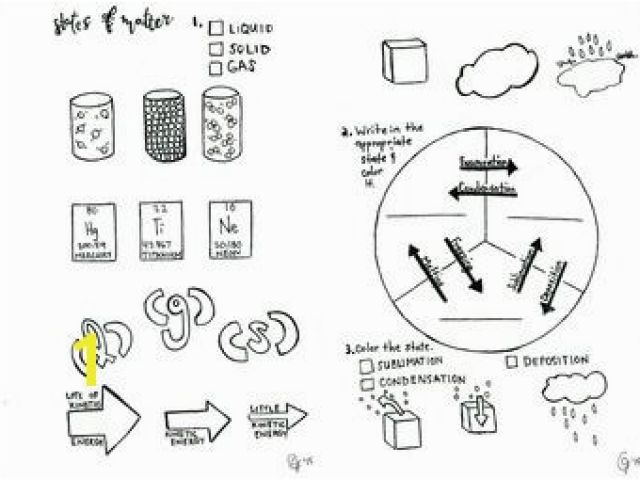 states of matter
1. LIQUID
SOLID
GAS
80
Hg
MERCURY
22
Ti
TITANIUM
10
Ne
NEON
(g)
(s)
1
LOTS OF
KINETIC
ENERGY
KINETIC
ENERGY
LITTLE
KINETIC
ENERGY
2. Write in the
appropriate
state &
color
it.
Evaporation
Condensation
Melting
Freezing
Sublimation
Deposition
3. Color the state.
SUBLIMATION
CONDENSATION
DEPOSITION